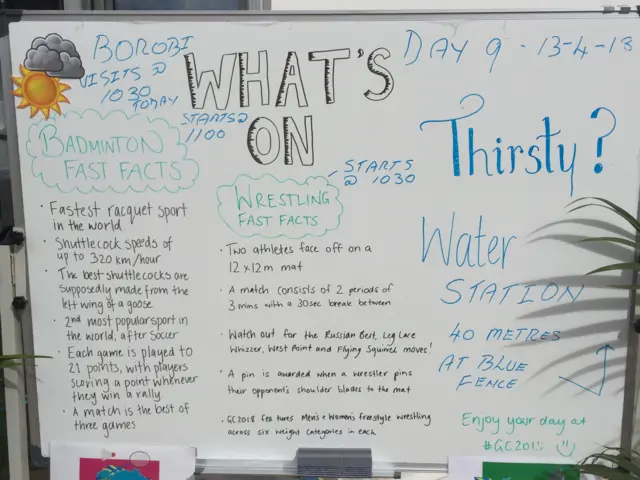 BOROBI
VISITS @
1030
TODAY
WHAT'S
ON
DAY 9 - 13-4-18
STARTS @
1100
BADMINTON
FAST FACTS
• Fastest racquet sport
in the world
• Shuttlecock speeds of
up to 320 km/hour
• The best shuttlecocks are
supposedly made from the
left wing of a goose
• 2nd most popular sport in
the world, after Soccer
• Each game is played to
21 points, with players
scoring a point whenever
they win a rally.
• A match is the best of
three games
STARTS
@ 1030
WRESTLING
FAST FACTS
• Two athletes face off on a
12 x 12m mat
• A match consists of 2 periods of
3 mins with a 30sec break between
• Watch out for the Russian Bert, Leg Lace
Whizzer, West Point and Flying Squirrel moves!
• A pin is awarded when a wrestler pins
their opponent's shoulder blades to the mat
• GC2018 features Men's + Women's freestyle wrestling
across six weight categories in each
Thirsty?
Water
STATION
40 METRES
AT BLUE
FENCE
Enjoy your day at